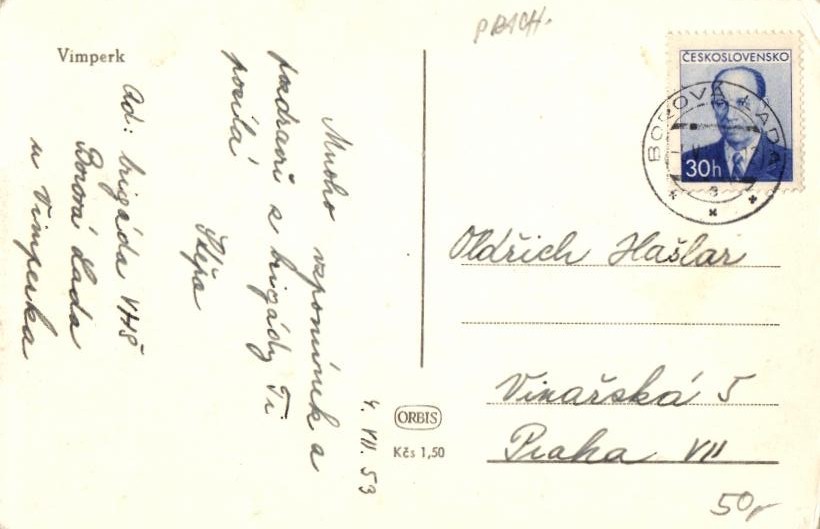 Vimperk
PRACH.
ČESKOSLOVENSKO
30h
BOROVÁ LADA
4. VII. 53
Mnoho vzpomínek a
pozdravů z brigády Ti
posílá
Štěpa
Ad: brigáda VHŠ
Borová Lada
u Vimperka
Oldřich Hašlar
Vinařská 5
Praha VII
ORBIS
Kčs 1,50
50,-